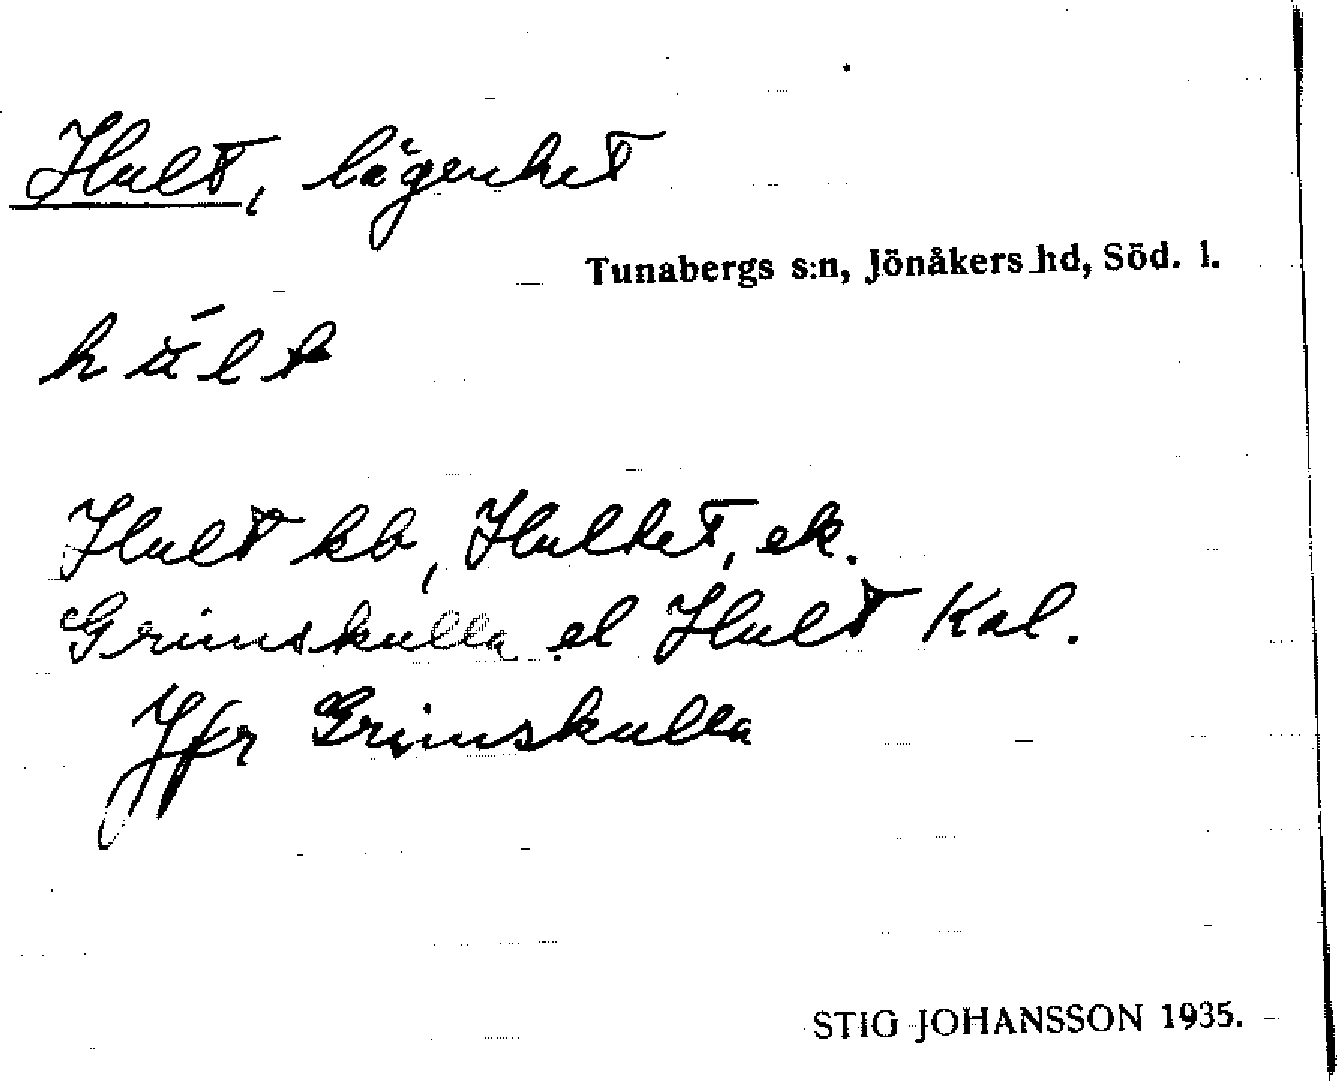 Hult, lägenhet
Tunabergs s:n, Jönåkers hd, Söd. l.
hult
Hult kb, Hulket, ek.
Grimskulla el Hult Kal.
Jfr Grimskulla
STIG JOHANSSON 1935.